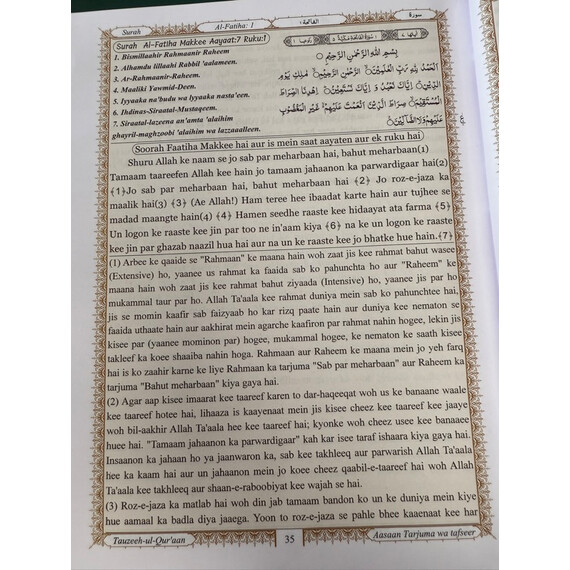 Surah
Al-Fatiha: 1
الفاتحة:
سورة
Surah Al-Fatiha Makkee Aayaat:7 Ruku:1
1. Bismillaahir Rahmaanir Raheem
2. Alhamdu lillaahi Rabbil 'aalameen.
3. Ar-Rahmaanir-Raheem.
4. Maaliki Yawmid-Deen.
5. Iyyaaka na'budu wa Iyyaaka nasta'een.
6. Ihdinas-Siraatal-Mustaqeem.
7. Siraatal-lazeena an'amta 'alaihim
ghayril-maghzoobi 'alaihim wa lazzaaalleen.
بِسْمِ اللّٰهِ الرَّحْمٰنِ الرَّحِيْمِ
اَلْحَمْدُ لِلّٰهِ رَبِّ الْعٰلَمِيْنَ الرَّحْمٰنِ الرَّحِيْمِ مٰلِكِ يَوْمِ
الدِّيْنِ اِيَّاكَ نَعْبُدُ وَ اِيَّاكَ نَسْتَعِيْنُ اِهْدِنَا الصِّرَاطَ
الْمُسْتَقِيْمَ صِرَاطَ الَّذِيْنَ اَنْعَمْتَ عَلَيْهِمْ غَيْرِ الْمَغْضُوْبِ
عَلَيْهِمْ وَلَا الضَّآلِّيْنَ
Soorah Faatiha Makkee hai aur is mein saat aayaten aur ek ruku hai
Shuru Allah ke naam se jo sab par meharbaan hai, bahut meharbaan(1)
Tamaam taareefen Allah kee hain jo tamaam jahaanon ka parwardigaar hai(2)
{1}Jo sab par meharbaan hai, bahut meharbaan hai {2} Jo roz-e-jaza ka
maalik hai(3) {3} (Ae Allah!) Ham teree hee ibaadat karte hain aur tujhee se
madad maangte hain(4) {4} Hamen seedhe raaste kee hidaayat ata farma {5}
Un logon ke raaste kee jin par too ne in'aam kiya {6} na ke un logon ke raaste
kee jin par ghazab naazil hua hai aur na un ke raaste kee jo bhatke hue hain.{7}
(1) Arbee ke qaaide se "Rahmaan" ke maana hain woh zaat jis kee rahmat bahut wasee
(Extensive) ho, yaanee us rahmat ka faaida sab ko pahunchta ho aur "Raheem" ke
maana hain woh zaat jis kee rahmat bahut ziyaada (Intensive) ho, yaanee jis par ho
mukammal taur par ho. Allah Ta'aala kee rahmat duniya mein sab ko pahunchtee hai,
jis se momin kaafir sab faizyaab ho kar rizq paate hain aur duniya kee nematon se
faaida uthaate hain aur aakhirat mein agarche kaafiron par rahmat nahin hogee, lekin jis
kisee par (yaanee mominon par) hogee, mukammal hogee, ke nematon ke saath kisee
takleef ka koee shaaiba nahin hoga. Rahmaan aur Raheem ke maana mein jo yeh farq
hai is ko zaahir karne ke liye Rahmaan ka tarjuma "Sab par meharbaan" aur Raheem ka
tarjuma "Bahut meharbaan" kiya gaya hai.
(2) Agar aap kisee imaarat kee taareef karen to dar-haqeeqat woh us ke banaane waale
kee taareef hotee hai, lihaaza is kaayenaat mein jis kisee cheez kee taareef kee jaaye
woh bil-aakhir Allah Ta'aala hee kee taareef hai; kyonke woh cheez usee kee banaaee
huee hai. "Tamaam jahaanon ka parwardigaar" kah kar isee taraf ishaara kiya gaya hai.
Insaanon ka jahaan ho ya jaanwaron ka, sab kee takhleeq aur parwarish Allah Ta'aala
hee ka kaam hai aur un jahaanon mein jo koee cheez qaabil-e-taareef hai woh Allah
Ta'aala kee takhleeq aur shaan-e-raboobiyat kee wajah se hai.
(3) Roz-e-jaza ka matlab hai woh din jab tamaam bandon ko un ke duniya mein kiye
hue aamaal ka badla diya jaaega. Yoon to roz-e-jaza se pahle bhee kaaenaat kee har
Tauzeeh-ul-Qur'aan
35
Aasaan Tarjuma wa tafseer